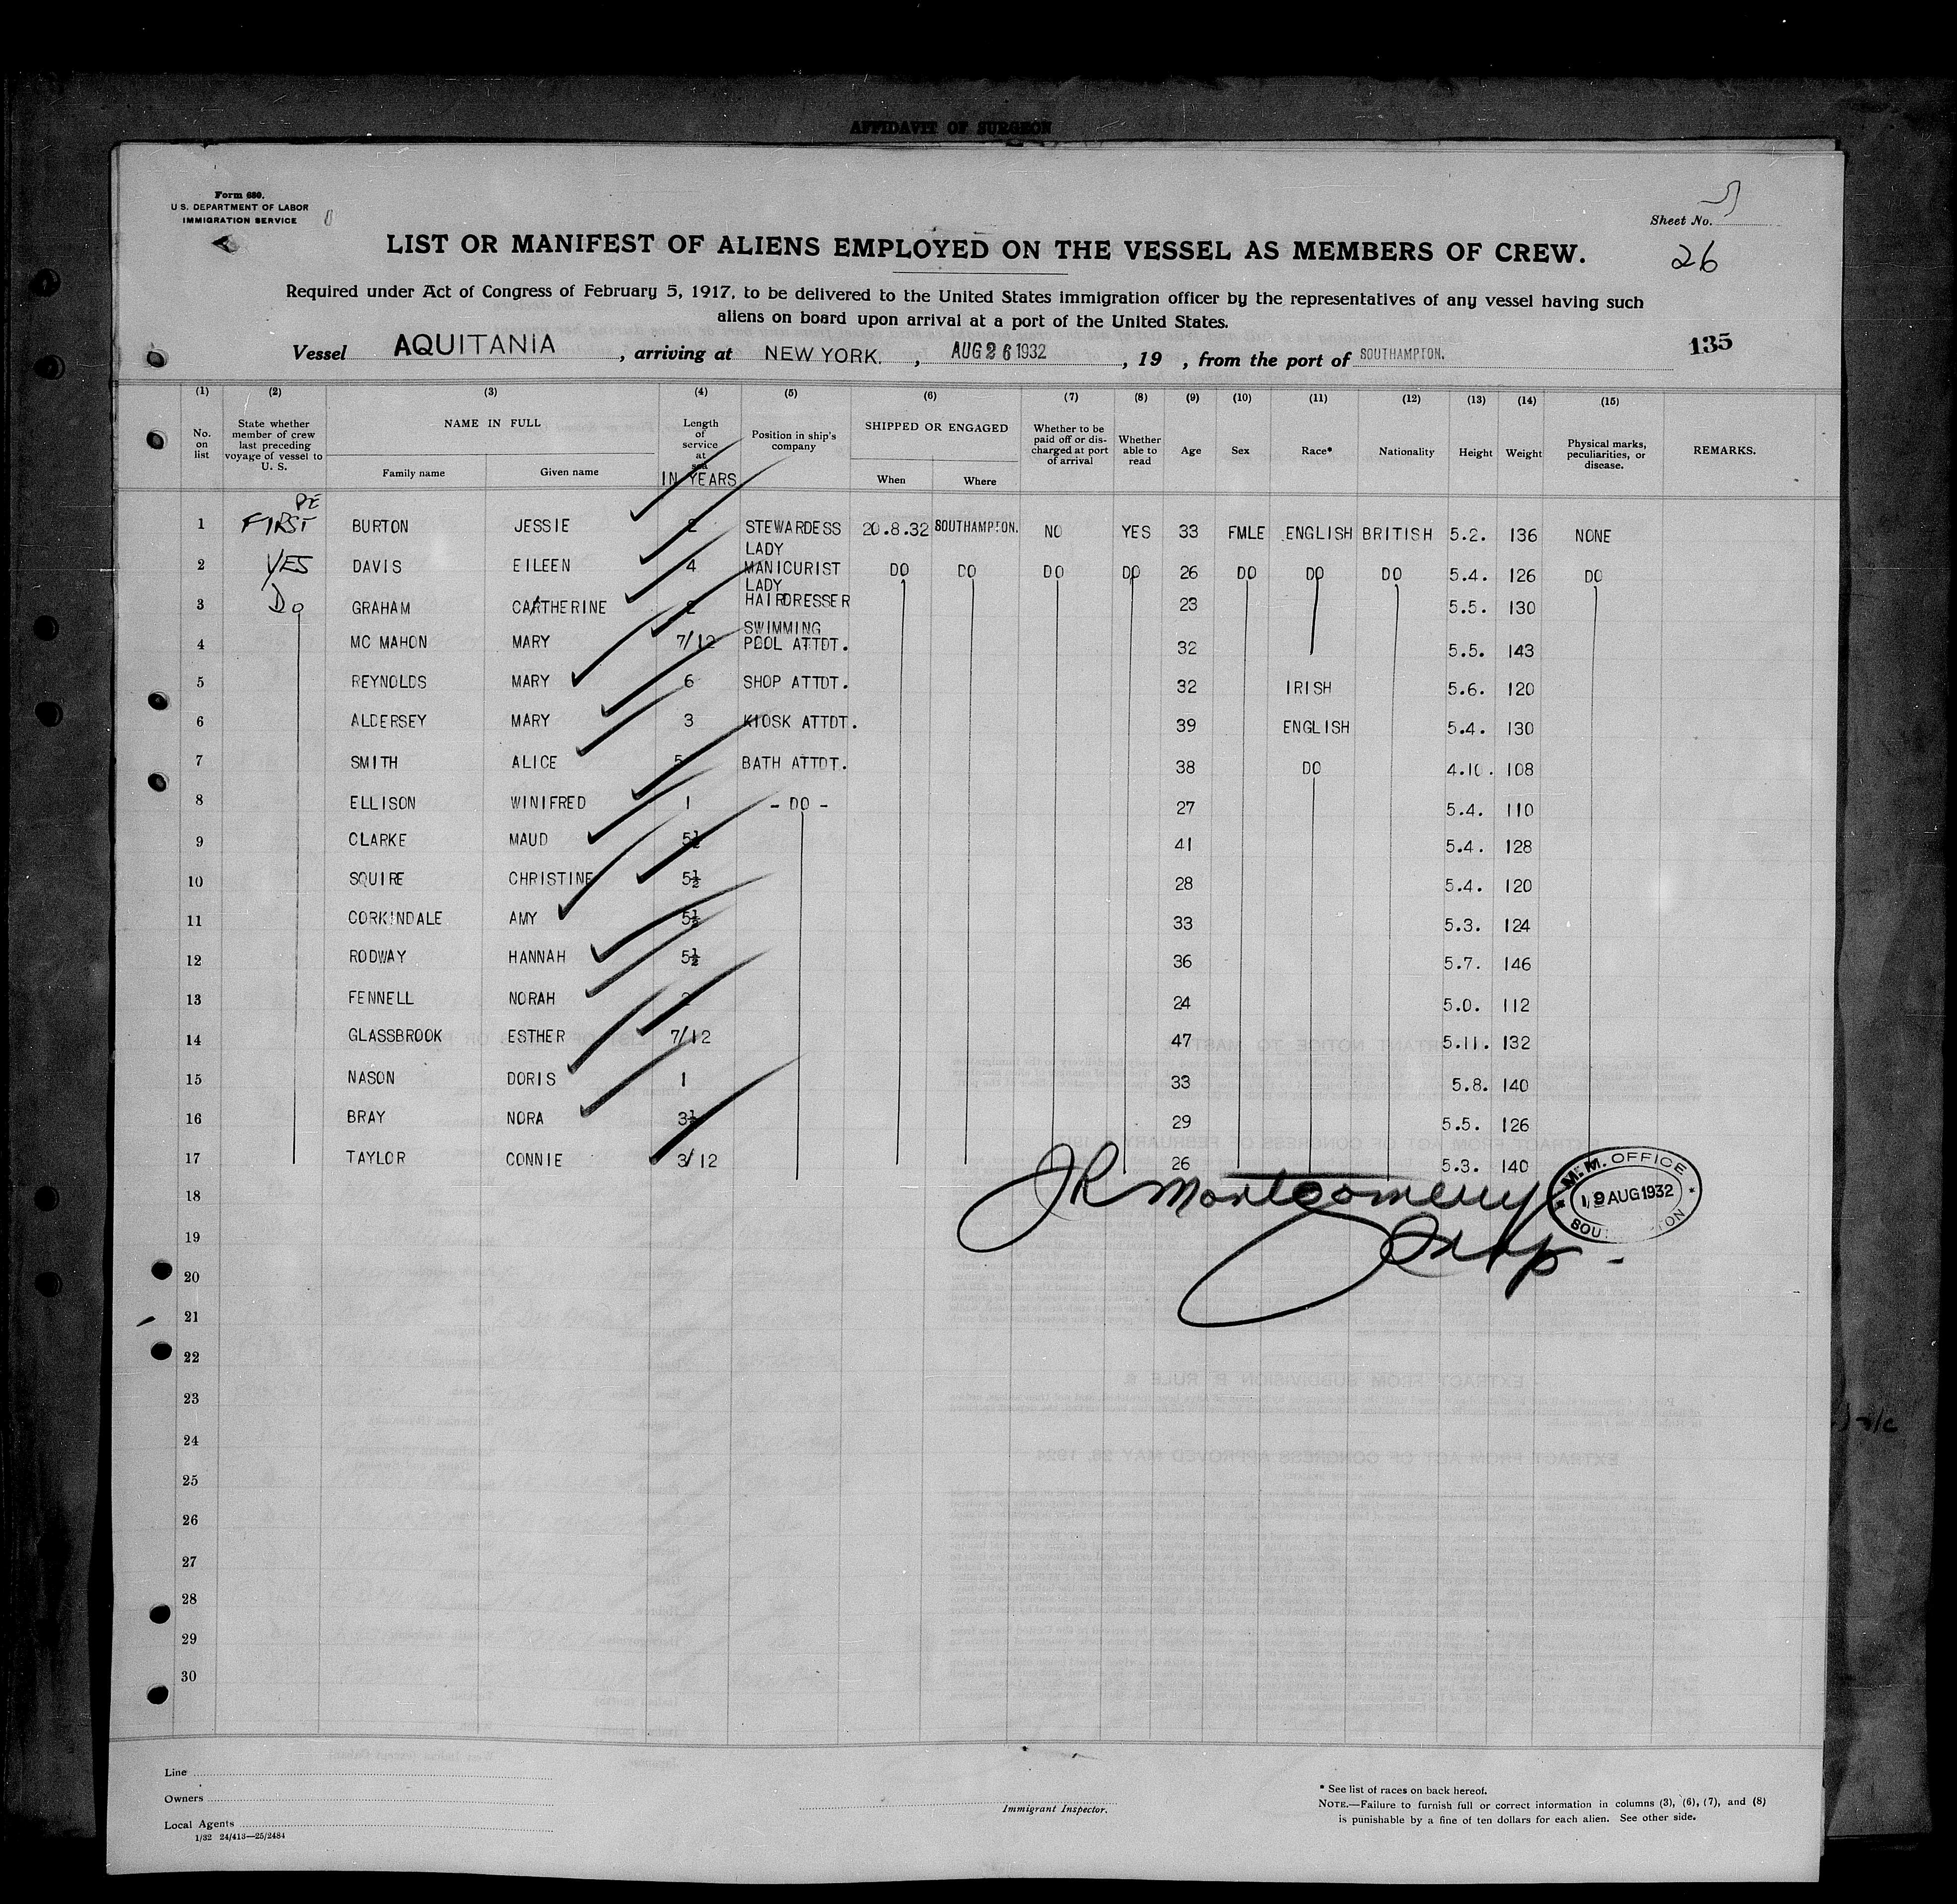 AFFIDAVIT OF SURGEON
Form 680.
U.S. DEPARTMENT OF LABOR
IMMIGRATION SERVICE
Sheet No.
26
LIST OR MANIFEST OF ALIENS EMPLOYED ON THE VESSEL AS MEMBERS OF CREW.
Required under Act of Congress of February 5, 1917, to be delivered to the United States immigration officer by the representatives of any vessel having such
aliens on board upon arrival at a port of the United States.
135
Vessel AQUITANIA , arriving at NEW YORK. , AUG 26 1932 , 19 , from the port of SOUTHAMPTON.
(1) (2) (3) (4) (5) (6) (7) (8) (9) (10) (11) (12) (13) (14) (15)
No. on list State whether member of crew last preceding voyage of vessel to U. S. NAME IN FULL Family name Given name Length of service at sea IN YEARS Position in ship's company SHIPPED OR ENGAGED When Where Whether to be paid off or discharged at port of arrival Whether able to read Age Sex Race* Nationality Height Weight Physical marks, peculiarities, or disease. REMARKS.
1 FIRST BURTON JESSIE 2 STEWARDESS 20.8.32 SOUTHAMPTON. NO YES 33 FMLE ENGLISH BRITISH 5.2. 136 NONE
2 YES DAVIS EILEEN 4 LADY MANICURIST DO DO DO DO 26 DO DO DO 5.4. 126 DO
3 Do GRAHAM CATHERINE 2 LADY HAIRDRESSER 23 5.5. 130
4 MC MAHON MARY 7/12 SWIMMING POOL ATTDT. 32 5.5. 143
5 REYNOLDS MARY 6 SHOP ATTDT. 32 IRISH 5.6. 120
6 ALDERSEY MARY 3 KIOSK ATTDT. 39 ENGLISH 5.4. 130
7 SMITH ALICE 5 BATH ATTDT. 38 DO 4.10. 108
8 ELLISON WINIFRED 1 - DO - 27 5.4. 110
9 CLARKE MAUD 5½ 41 5.4. 128
10 SQUIRE CHRISTINE 5½ 28 5.4. 120
11 CORKINDALE AMY 5½ 33 5.3. 124
12 RODWAY HANNAH 5½ 36 5.7. 146
13 FENNELL NORAH 2 24 5.0. 112
14 GLASSBROOK ESTHER 7/12 47 5.11. 132
15 NASON DORIS 1 33 5.8. 140
16 BRAY NORA 3½ 29 5.5. 126
17 TAYLOR CONNIE 3/12 26 5.3. 140
18 JR Montgomery
M.M. OFFICE
19 AUG 1932
19 Insp.
20
21
22
23
24
25
26
27
28
29
30
Line
Owners
Local Agents
1/32 24/413—25/2484
Immigrant Inspector.
* See list of races on back hereof.
NOTE.—Failure to furnish full or correct information in columns (3), (6), (7), and (8)
is punishable by a fine of ten dollars for each alien. See other side.